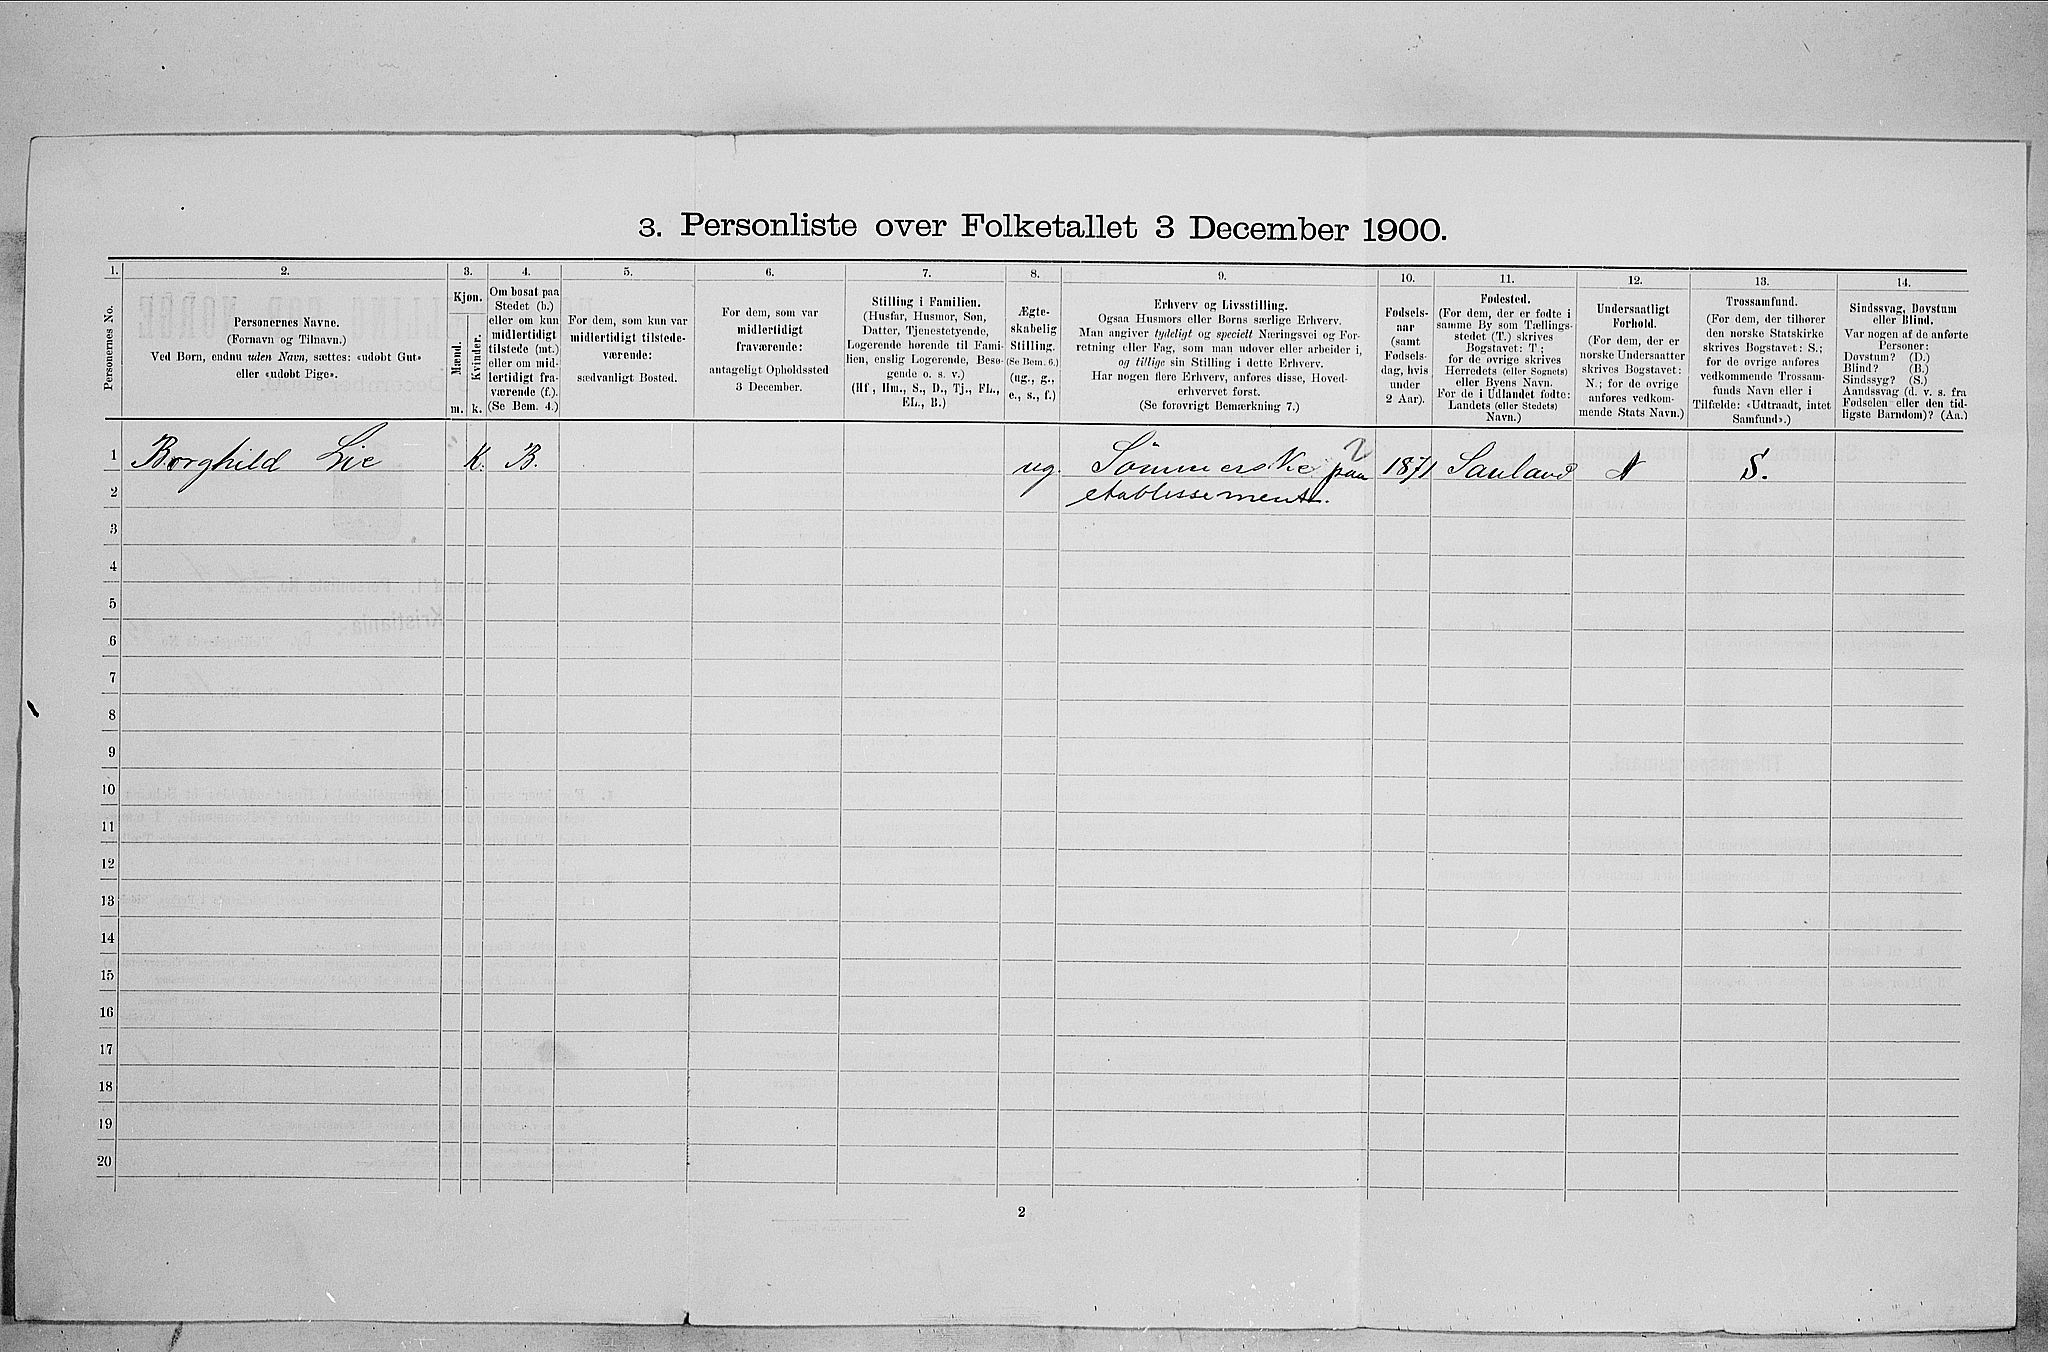 3. Personliste over Folketallet 3 December 1900.
1. 2. 3. 4. 5. 6. 7. 8. 9. 10. 11. 12. 13. 14.
Personernes No.
Personernes Navne.
(Fornavn og Tilnavn.)
Ved Børn, endnu uden Navn, sættes: «udøbt Gut»
eller «udøbt Pige».
Kjøn.
Mænd.
Kvinder.
m. k.
Om bosat paa
Stedet (b.)
eller om kun
midlertidigt
tilstede (mt.)
eller om mid-
lertidigt fra-
værende (f.).
(Se Bem. 4.)
For dem, som kun var
midlertidigt tilstede-
værende:
sædvanligt Bosted.
For dem, som var
midlertidigt
fraværende:
antageligt Opholdssted
3 December.
Stilling i Familien.
(Husfar, Husmor, Søn,
Datter, Tjenestetyende,
Logerende hørende til Fami-
lien, enslig Logerende, Besø-
gende o. s. v.)
(Hf, Hm., S., D., Tj., FL.,
EL., B.)
Ægte-
skabelig
Stilling.
(Se Bem. 6.)
(ug., g.,
e., s., f.)
Erhverv og Livsstilling.
Ogsaa Husmors eller Børns særlige Erhverv.
Man angiver tydeligt og specielt Næringsvei og For-
retning eller Fag, som man udøver eller arbeider i,
og tillige sin Stilling i dette Erhverv.
Har nogen flere Erhverv, anføres disse, Hoved-
erhvervet først.
(Se forøvrigt Bemærkning 7.)
Fødsels-
aar
(samt
Fødsels-
dag, hvis
under
2 Aar).
Fødested.
(For dem, der er fødte i
samme By som Tællings-
stedet (T.) skrives
Bogstavet: T;
for de øvrige skrives
Herredets (eller Sognets)
eller Byens Navn.
For de i Udlandet fødte:
Landets (eller Stedets)
Navn.)
Undersaatligt
Forhold.
(For dem, der er
norske Undersaatter
skrives Bogstavet:
N.; for de øvrige
anføres vedkom-
mende Stats Navn.)
Trossamfund.
(For dem, der tilhører
den norske Statskirke
skrives Bogstavet: S.;
for de øvrige anføres
vedkommende Trossam-
funds Navn eller i
Tilfælde: «Udtraadt, intet
Samfund».)
Sindssvag, Døvstum
eller Blind.
Var nogen af de anførte
Personer:
Døvstum? (D.)
Blind? (B.)
Sindssyg? (S.)
Aandssvag (d. v. s. fra
Fødselen eller den tid-
ligste Barndom)? (Aa.)
1 Borghild Lie K. B. ug. Sömmerske paa 1871 Sauland N S.
2 etablissement.
3
4
5
6
7
8
9
10
11
12
13
14
15
16
17
18
19
20
2